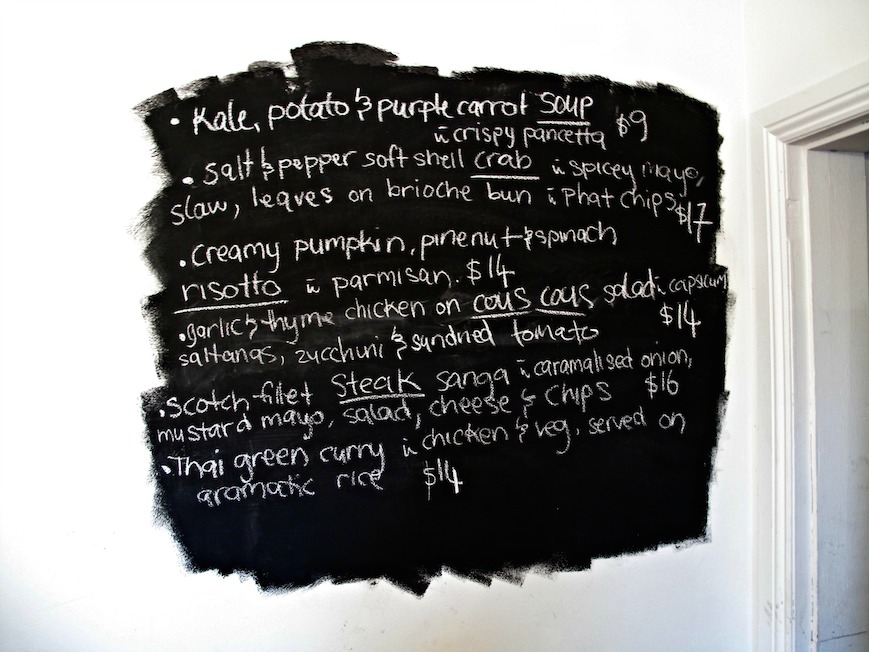 • Kale, potato & purple carrot soup
w crispy pancetta $9
• Salt & pepper soft shell crab w spicey mayo,
slaw, leaves on brioche bun w phat chips $17
• Creamy pumpkin, pinenut & spinach
risotto w parmisan. $14
• garlic & thyme chicken on cous cous salad w capsicum
saltanas, zucchini & sundried tomato $14
• Scotch fillet Steak sanga w caramalised onion,
mustard mayo, salad, cheese & chips $16
• Thai green curry w chicken & veg, served on
aramatic rice $14